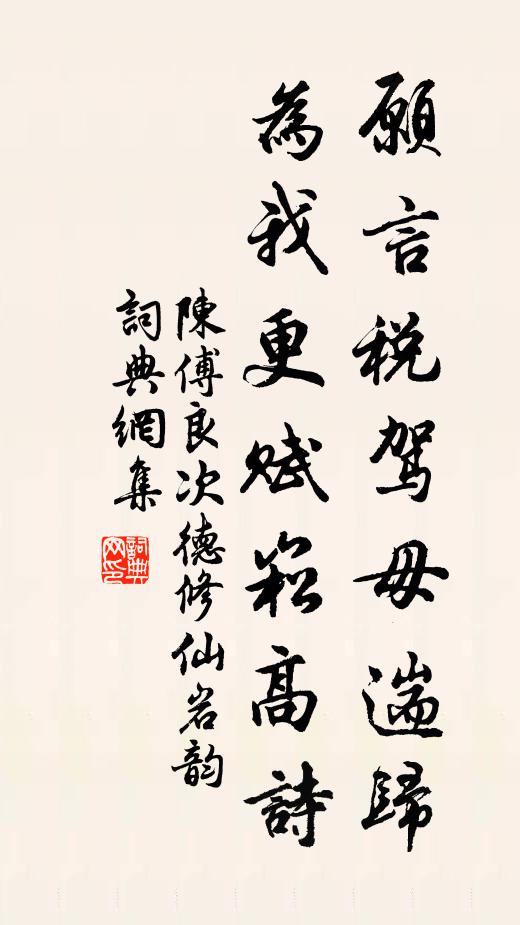 願言税駕毋遄歸
為我更賦崧高詩
陳傅良次德修仙岩韵
詞典網集
詞典网印